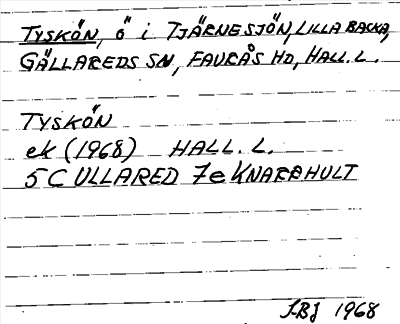 TYSKÖN, ö i TJÄRNESJÖN, LILLA BACKA,
GÄLLAREDS SN, FAURÅS HD, HALL. L.
TYSKÖN
ek (1968) HALL. L.
5C ULLARED 7e KNARAHULT
1968